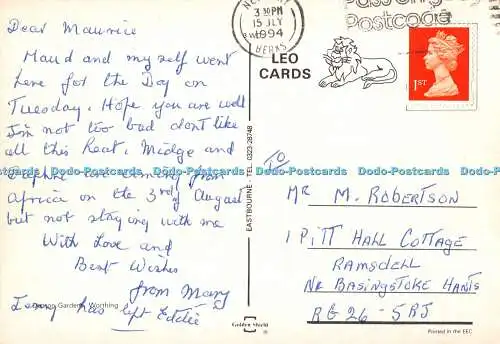 Dear Maurice
Maud and my self went
here for the Day on
Tuesday. Hope you are well
I'm not too bad dont like
all this Heat, Midge and
are coming from
Africa on the 3rd of August
but not staying with me
With Love and
Best Wishes
from Mary
has left Eddie
Gardens, Worthing
3 30 PM
15 JLY
1994
BERKS
Postcode
1ST
LEO
CARDS
EASTBOURNE - TEL. 0323-28748
To
MR M. ROBERTSON
1 PITT HALL COTTAGE
RAMSDELL
NR BASINGSTOKE HANTS
RG26-5RJ
Golden Shield
Printed in the EEC
Dodo-Postcards Dodo-Postcards Dodo-Postcards Dodo-Postcards Dodo-Postcards Dodo-Postcards